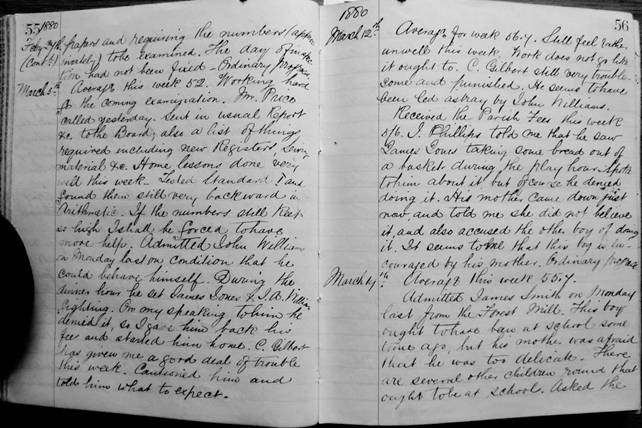 55
1880
Feby 27th papers and requiring the numbers (approx
(Contd) imately) to be examined. The day of exam
tion had not been fixed - Ordinary progress
March 5th Average this week 52. Working hard
for the coming examination. Mr. Price
called yesterday. Sent in usual Report
&c. to the Board, also a list of things
required including new Registers, Sewing
material &c. Home lessons done very
well this week. Tested Standard I and
found them still very backward in
Arithmetic. If the numbers still keep
so high I shall be forced to have
more help. Admitted John William
on Monday last on condition that he
could behave himself. During the
dinner hour he set James Jones & J. A. William
fighting. On my speaking to him he
denied it, so I gave him back his
fee and started him home. C. Gilbert
has given me a good deal of trouble
this week. Cautioned him and
told him what to expect.
1880
56
March 12th. Average for week 56.7. Still feel rather
unwell this week. Work does not go like
it ought to. C. Gilbert still very trouble-
some and punished. He seems to have
been led astray by John Williams.
Received the Parish Fees this week
5/6. J. Phillips told me that he saw
James Jones taking some bread out of
a basket during the play hour. Spoke
to him about it but of course he denied
doing it. His mother came down just
now and told me she did not believe
it, and also accused the other boy of doing
it. It seems to me that this boy is en-
couraged by his mother. Ordinary progress
March 19th. Average this week 55.7.
Admitted James Smith on Monday
last from the Forest Mill. This boy
ought to have been at school some
time ago, but his mother was afraid
that he was too delicate. There
are several other children round that
ought to be at school. Asked the